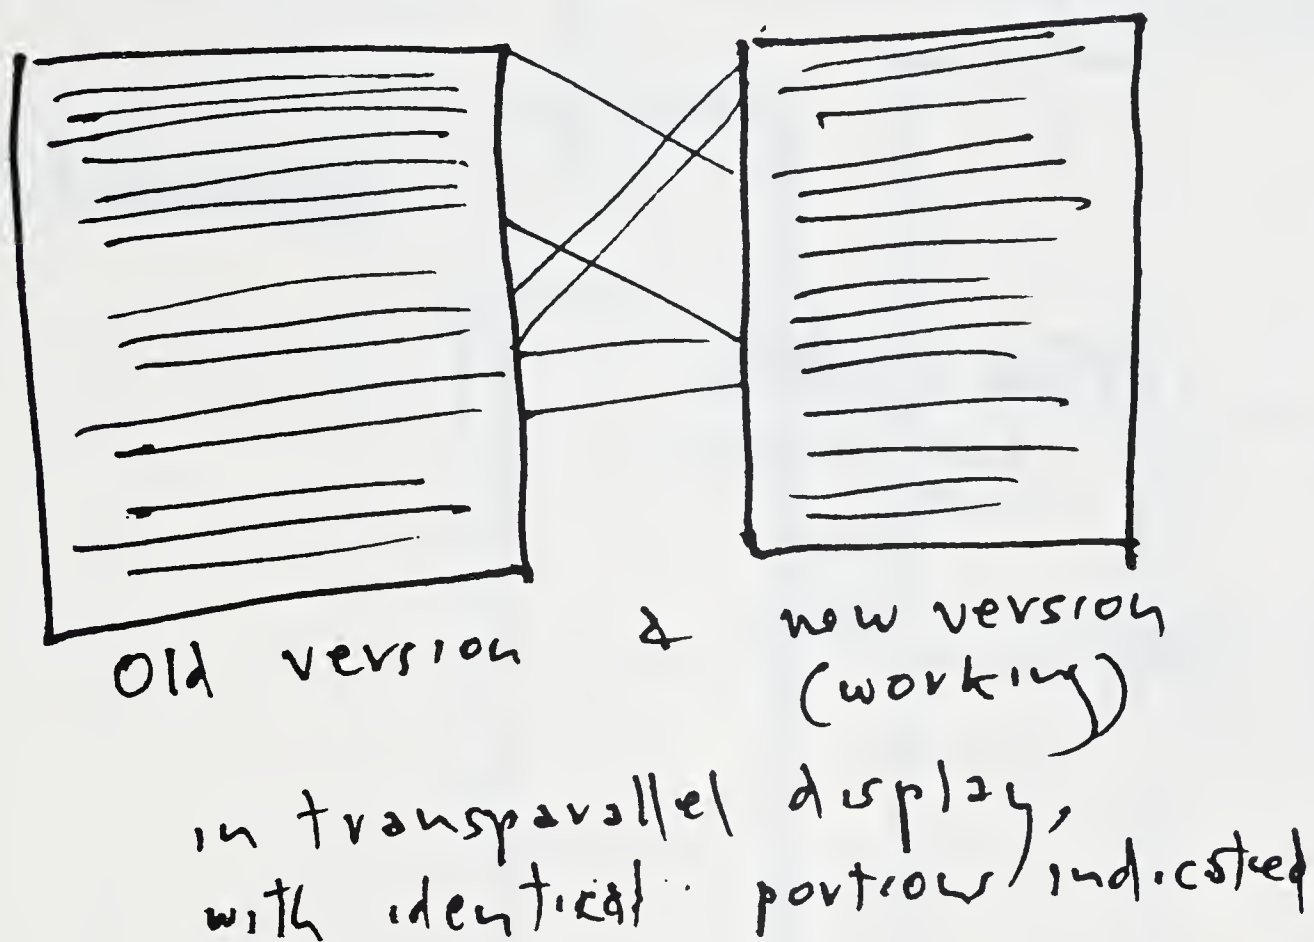 Old version & new version
(working)
in transparallel display,
with identical portions indicated